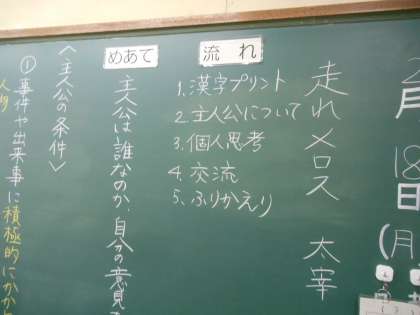 月
18日
(月)
走れメロス 太宰
流れ
1. 漢字プリント
2. 主人公について
3. 個人思考
4. 交流
5. ふりかえり
めあて
主人公は誰なのか、自分の意見
〈主人公の条件〉
①事件や出来事に積極的にかか
人物